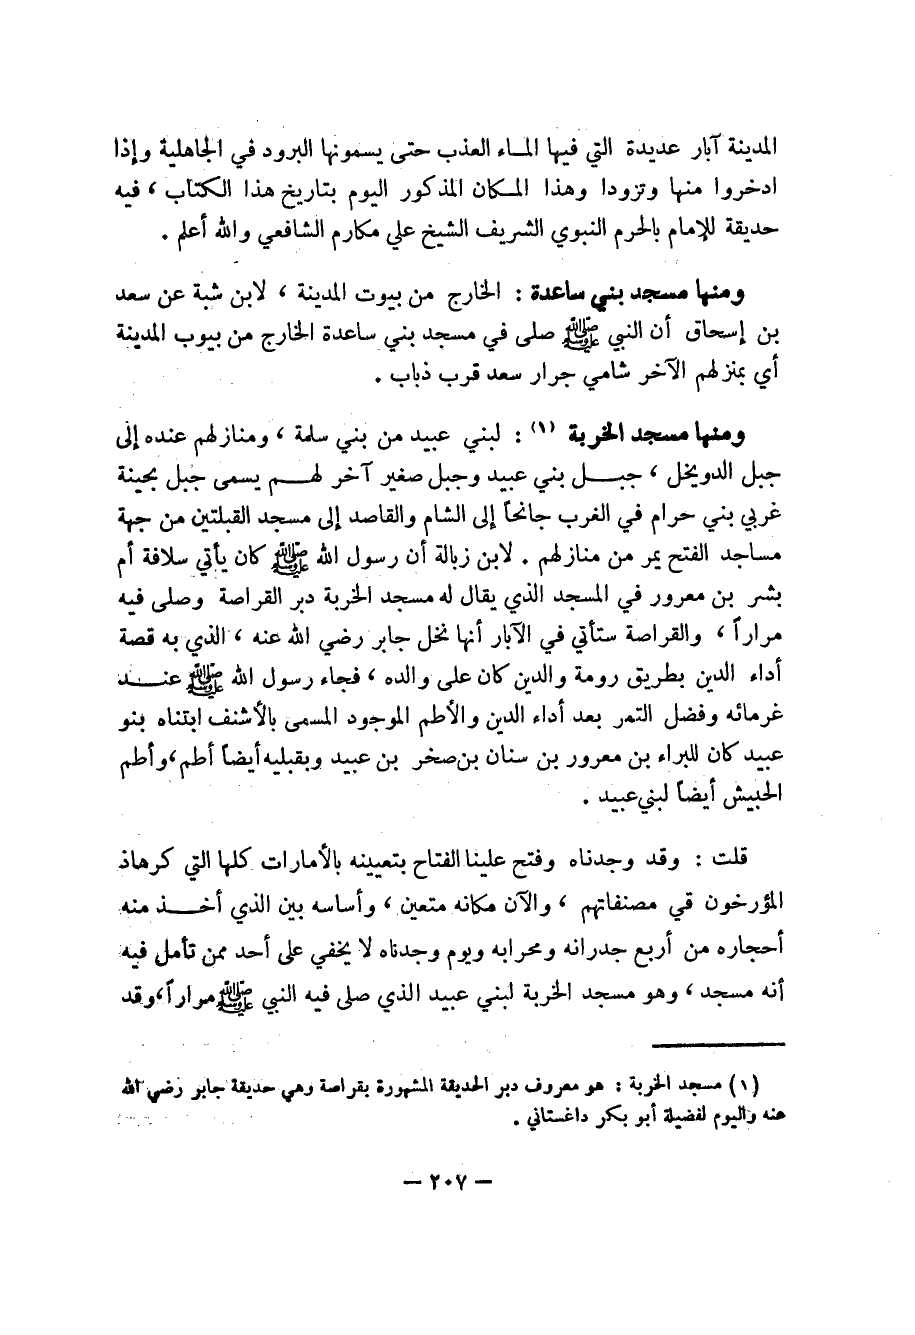 المدينة آبار عديدة التي فيها المـاء العذب حتى يسمونها البرود في الجاهلية وإذا
ادخروا منها وتزودا وهذا المكان المذكور اليوم بتاريخ هذا الكتاب ، فيه
حديقة للإمام بالحرم النبوي الشريف الشيخ علي مكارم الشافعي والله أعلم .
ومنها مسجد بني ساعدة : الخارج من بيوت المدينة ، لابن شبة عن سعد
بن إسحاق أن النبي ﷺ صلى في مسجد بني ساعدة الخارج من بيوب المدينة
أي بمنزلهم الآخر شامي جرار سعد قرب ذباب .
ومنها مسجد الخربة (١) : لبني عبيد من بني سلمة ، ومنازلهم عنده إلى
جبل الدويخل ، جبـــل بني عبيد وجبل صغير آخر لهـــم يسمى جبل بحينة
غربي بني حرام في الغرب جانحاً إلى الشام والقاصد إلى مسجد القبلتين من جهة
مساجد الفتح يمر من منازلهم . لابن زبالة أن رسول الله ﷺ كان يأتي سلافة أم
بشر بن معرور في المسجد الذي يقال له مسجد الخربة دبر القراصة وصلى فيه
مراراً ، والقراصة ستأتي في الآبار أنها نخل جابر رضي الله عنه ، الذي به قصة
أداء الدين بطريق رومة والدين كان على والده ، فجاء رسول الله ﷺ عنـــد
غرمائه وفضل التمر بعد أداء الدين والأطم الموجود المسمى بالأشنف ابتناه بنو
عبيد كان للبراء بن معرور بن سنان بن صخر بن عبيد وبقبليه أيضاً أطم ، وأطم
الحبيش أيضاً لبني عبيد .
قلت : وقد وجدناه وفتح علينا الفتاح بتعيينه بالأمارات كلها التي كرهاذ
المؤرخون قي مصنفاتهم ، والآن مكانه متعين ، وأساسه بين الذي أخـــذ منه
أحجاره من أربع جدرانه ومحرابه ويوم وجدناه لا يخفي على أحد ممن تأمل فيه
أنه مسجد ، وهو مسجد الخربة لبني عبيد الذي صلى فيه النبي ﷺ مراراً ، وقد
(١) مسجد الخربة : هو معروف دبر الحديقة المشهورة بقراصة وهي حديقة جابر رضي الله
عنه واليوم لفضيلة أبو بكر داغستاني .
— ٢٠٧ —